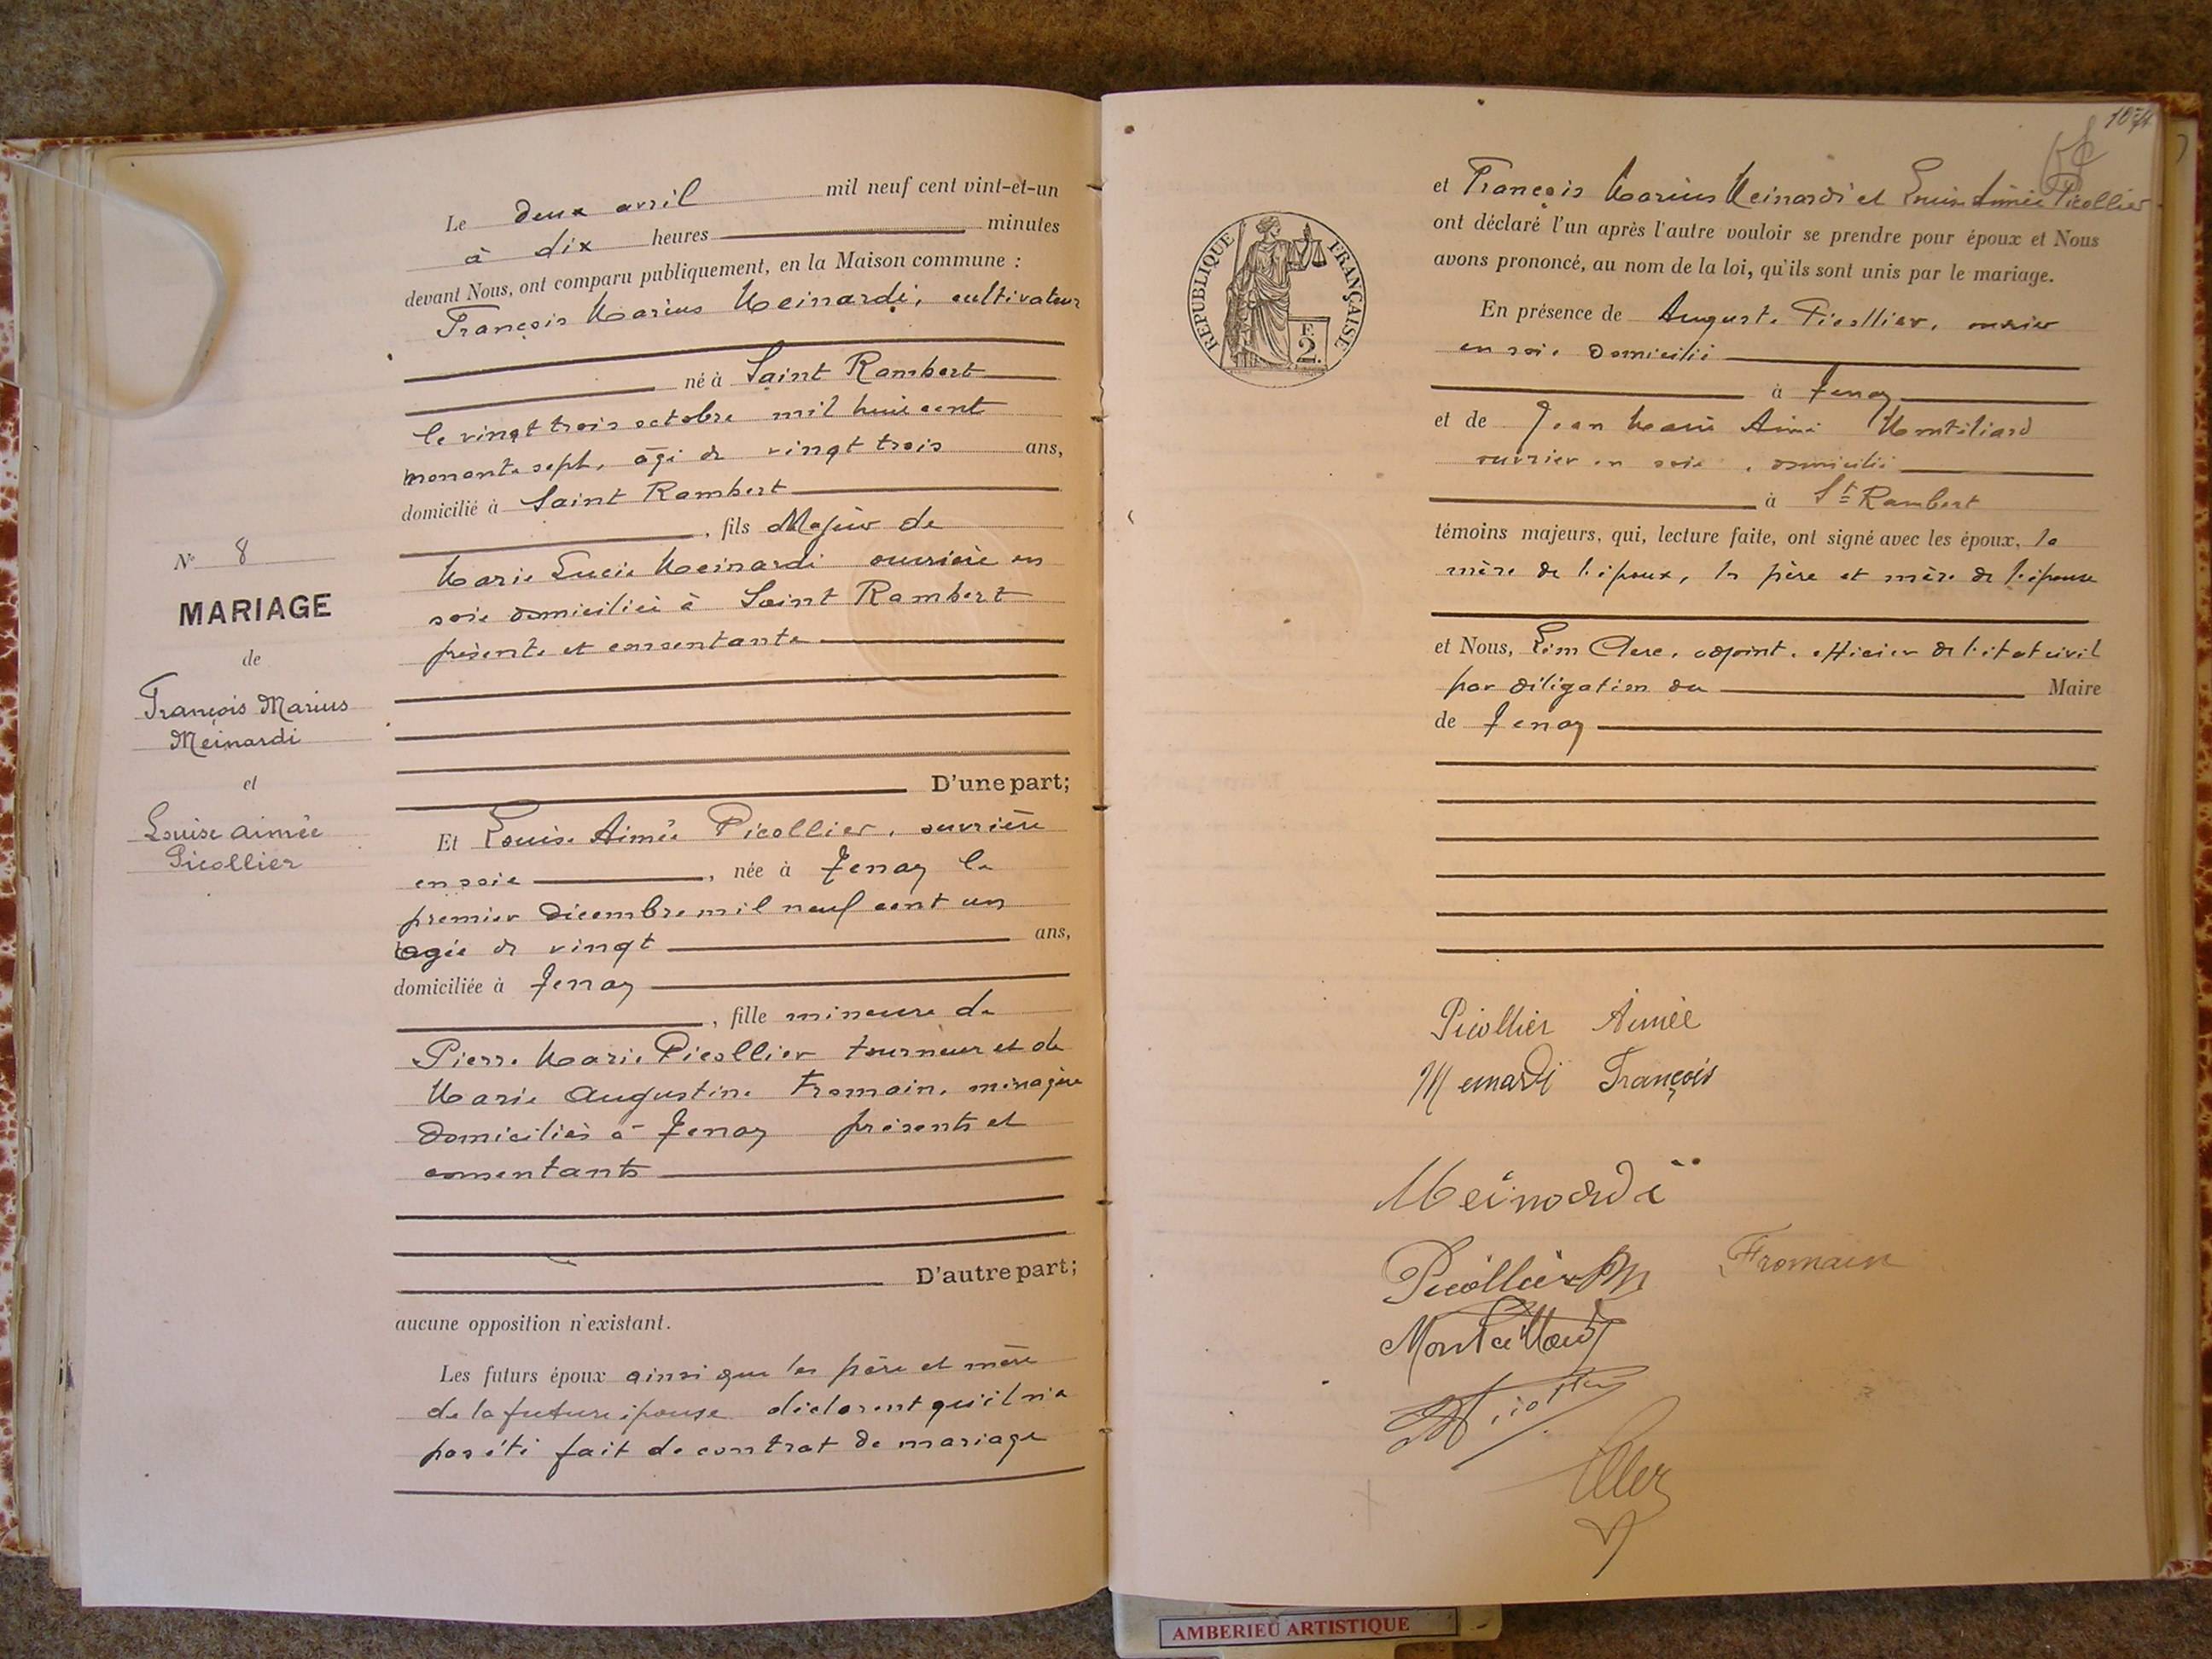 Le deux avril mil neuf cent vint-et-un
à dix heures minutes
devant Nous, ont comparu publiquement, en la Maison commune :
François Marius Meinardi, cultivateur
né à Saint Rambert
le vingt trois octobre mil huit cent
nonante sept, âgé de vingt trois ans,
domicilié à Saint Rambert
, fils Majeur de
Marie Lucie Meinardi ouvrière en
soie domiciliée à Saint Rambert
présente et consentante
D'une part;
N° 8
MARIAGE
de
François Marius
Meinardi
et
Louise aimée
Picollier
Et Louise Aimée Picollier, ouvrière
en soie, née à Tenay le
premier décembre mil neuf cent un
agée de vingt ans,
domiciliée à Tenay
, fille mineure de
Pierre Marie Picollier tourneur et de
Marie Augustine Fromain, ménagère
domiciliés à Tenay présents et
consentants
D'autre part;
aucune opposition n'existant.
Les futurs époux ainsi que les père et mère
de la future épouse déclarent qu'il n'a
pas été fait de contrat de mariage
1074
et François Marius Meinardi et Louise Aimée Picollier
ont déclaré l'un après l'autre vouloir se prendre pour époux et Nous
avons prononcé, au nom de la loi, qu'ils sont unis par le mariage.
REPUBLIQUE FRANÇAISE
F.
2.
En présence de Auguste Picollier, ouvrier
en soie domicilié
à Tenay
et de Jean Marie Aimé Montiliard
ouvrier en soie, domicilié
à St Rambert
témoins majeurs, qui, lecture faite, ont signé avec les époux, la
mère de l'époux, les père et mère de l'épouse
et Nous, Léon Clerc, adjoint, officier de l'état civil
par délégation du Maire
de Tenay
Picollier Aimée
Meinardi François
Meinardi
Picollier PM Fromain
AMBERIEU ARTISTIQUE